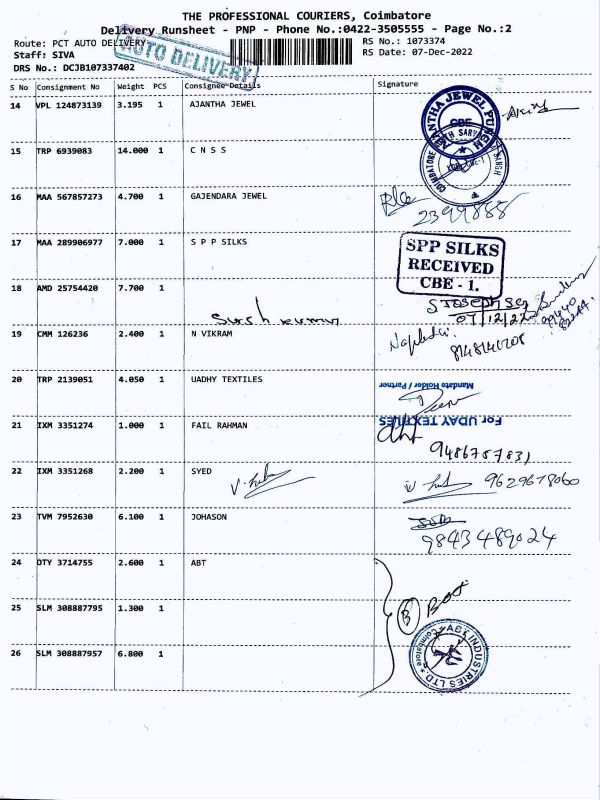 THE PROFESSIONAL COURIERS, Coimbatore
Delivery Runsheet - PNP - Phone No.:0422-3505555 - Page No.:2
Route: PCT AUTO DELIVERY
RS No.: 1073374
Staff: SIVA
RS Date: 07-Dec-2022
DRS No.: DCJB107337402
AUTO DELIVERY
S No Consignment No Weight PCS Consignee Details Signature
14 VPL 124873139 3.195 1 AJANTHA JEWEL
AJANTHA JEWEL PUNCH
CBE
15 TRP 6939083 14.000 1 C N S S
COIMBATORE
16 MAA 567857273 4.700 1 GAJENDARA JEWEL
2399888
17 MAA 289906977 7.000 1 S P P SILKS
SPP SILKS
RECEIVED
CBE - 1.
18 AMD 25754420 7.700 1
07/12/22
19 CMM 126236 2.400 1 N VIKRAM
8148141708
20 TRP 2139051 4.050 1 UADHY TEXTILES
Mandate Holder / Partner
For UDAY TEXTILES
21 IXM 3351274 1.000 1 FAIL RAHMAN
9486757831
22 IXM 3351268 2.200 1 SYED
9629678060
23 TVM 7952630 6.100 1 JOHASON
9843489024
24 OTY 3714755 2.600 1 ABT
25 SLM 308887795 1.300 1
3 Box
26 SLM 308887957 6.800 1
ABT INDUSTRIES LTD.
Coimbatore